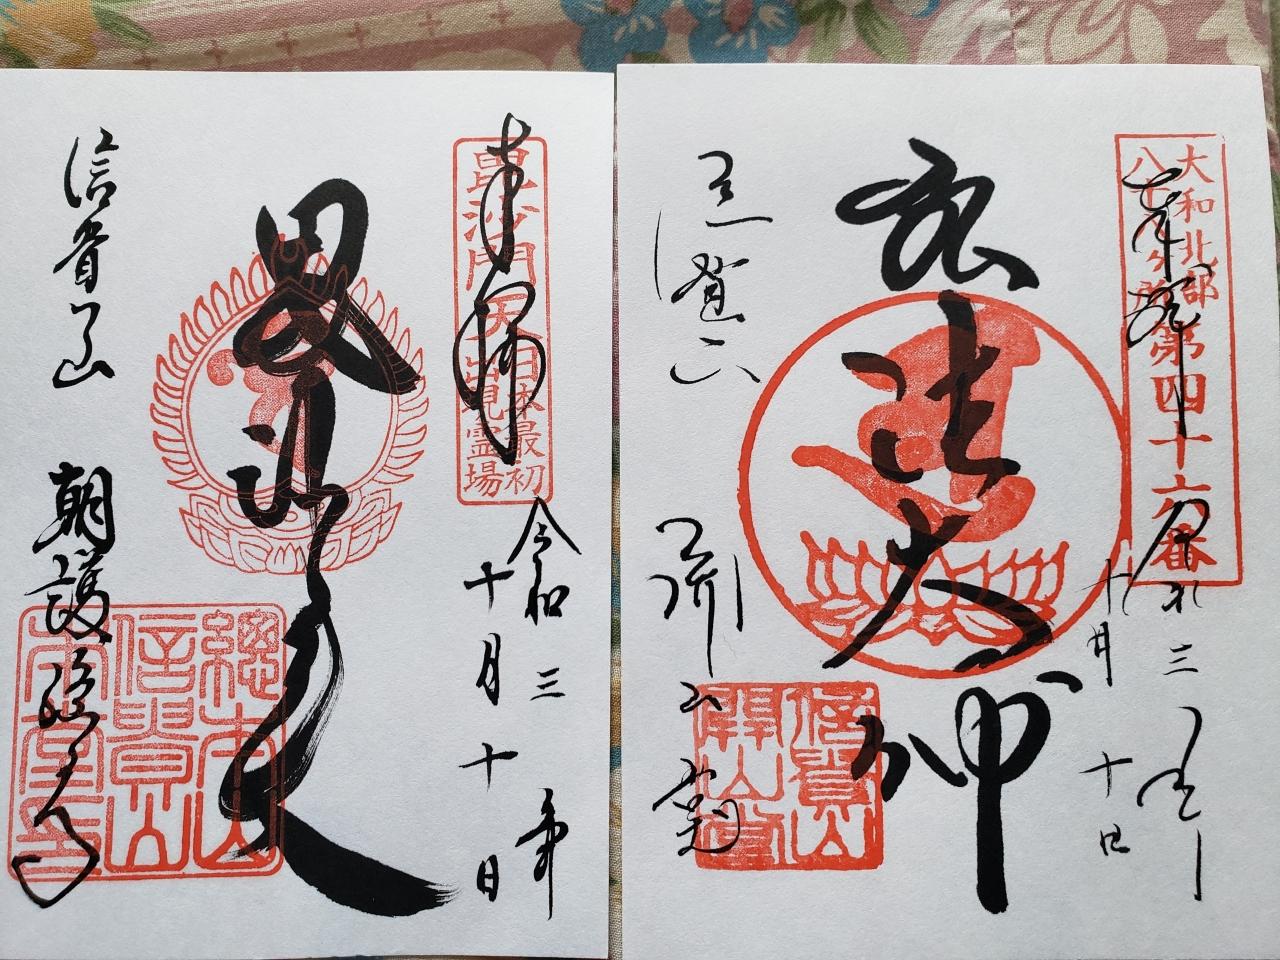 奉拝
毘沙門天
日本最初
出現霊場
令和三年
十月十日
毘沙門天
信貴山 朝護孫子寺
總本山
信貴山
本堂印
奉拝
大和北部
八十八ヶ所
第四十六番
令和三年
十月十日
弘法大師
信貴山
開山堂
信貴山
開山堂